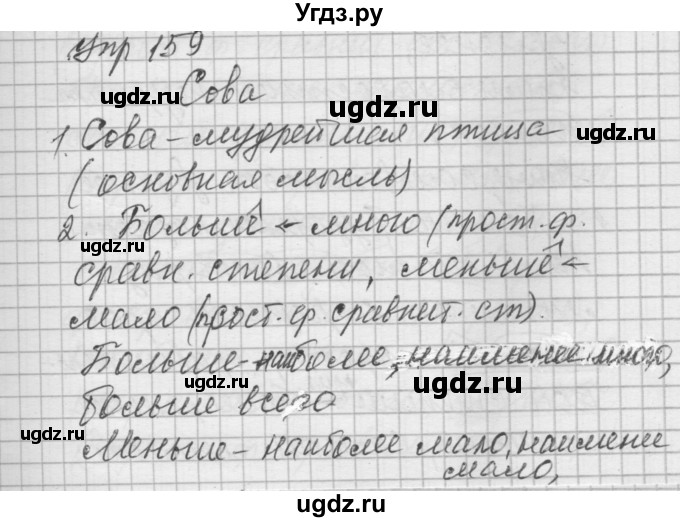 Угдз.ру
Упр 159
ugdz.ru Сова ugdz.ru
1. Сова – мудрейшая птица
ugdz.ru
(основная мысль)
2. Больше ← много (прост. ф.
ugdz.ru
сравн. степени, меньше ←
ugdz.ru
мало (прост. ф. сравнит. ст).
ugdz.ru
Больше – наиболее, наименее много,
ugdz.ru
больше всего
ugdz.ru
Меньше – наиболее мало, наимене
мало,
ugdz.ru